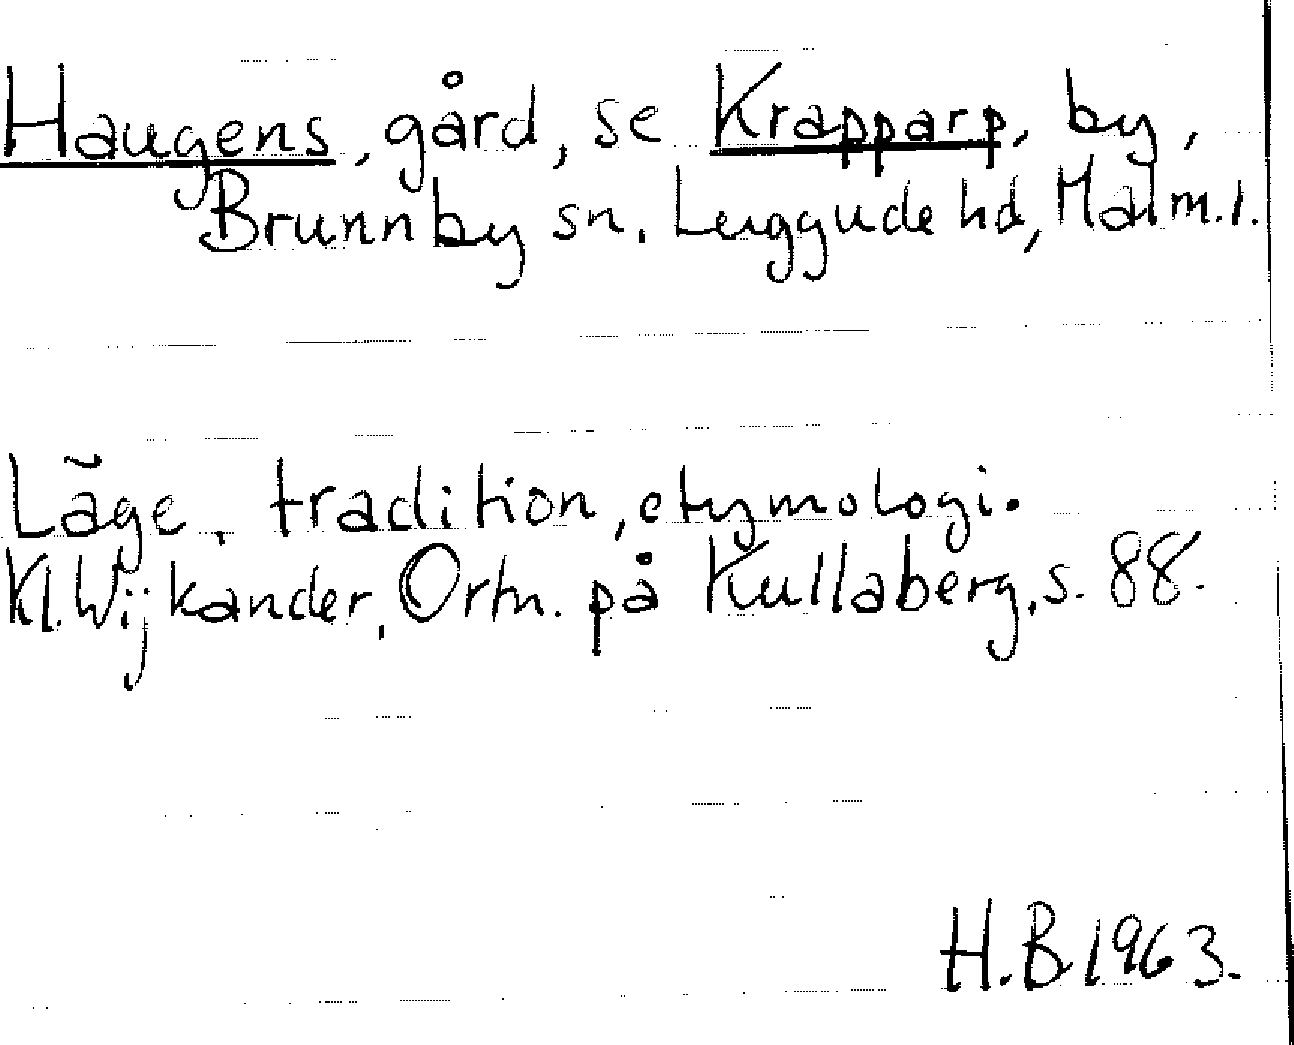 Haugens, gård, se Krapparp, by,
Brunnby sn. Luggude hd, Malm.l.
Läge, tradition, etymologi.
Kl. Wijkander, Ortn. på Kullaberg, s. 88.
H.B 1963.